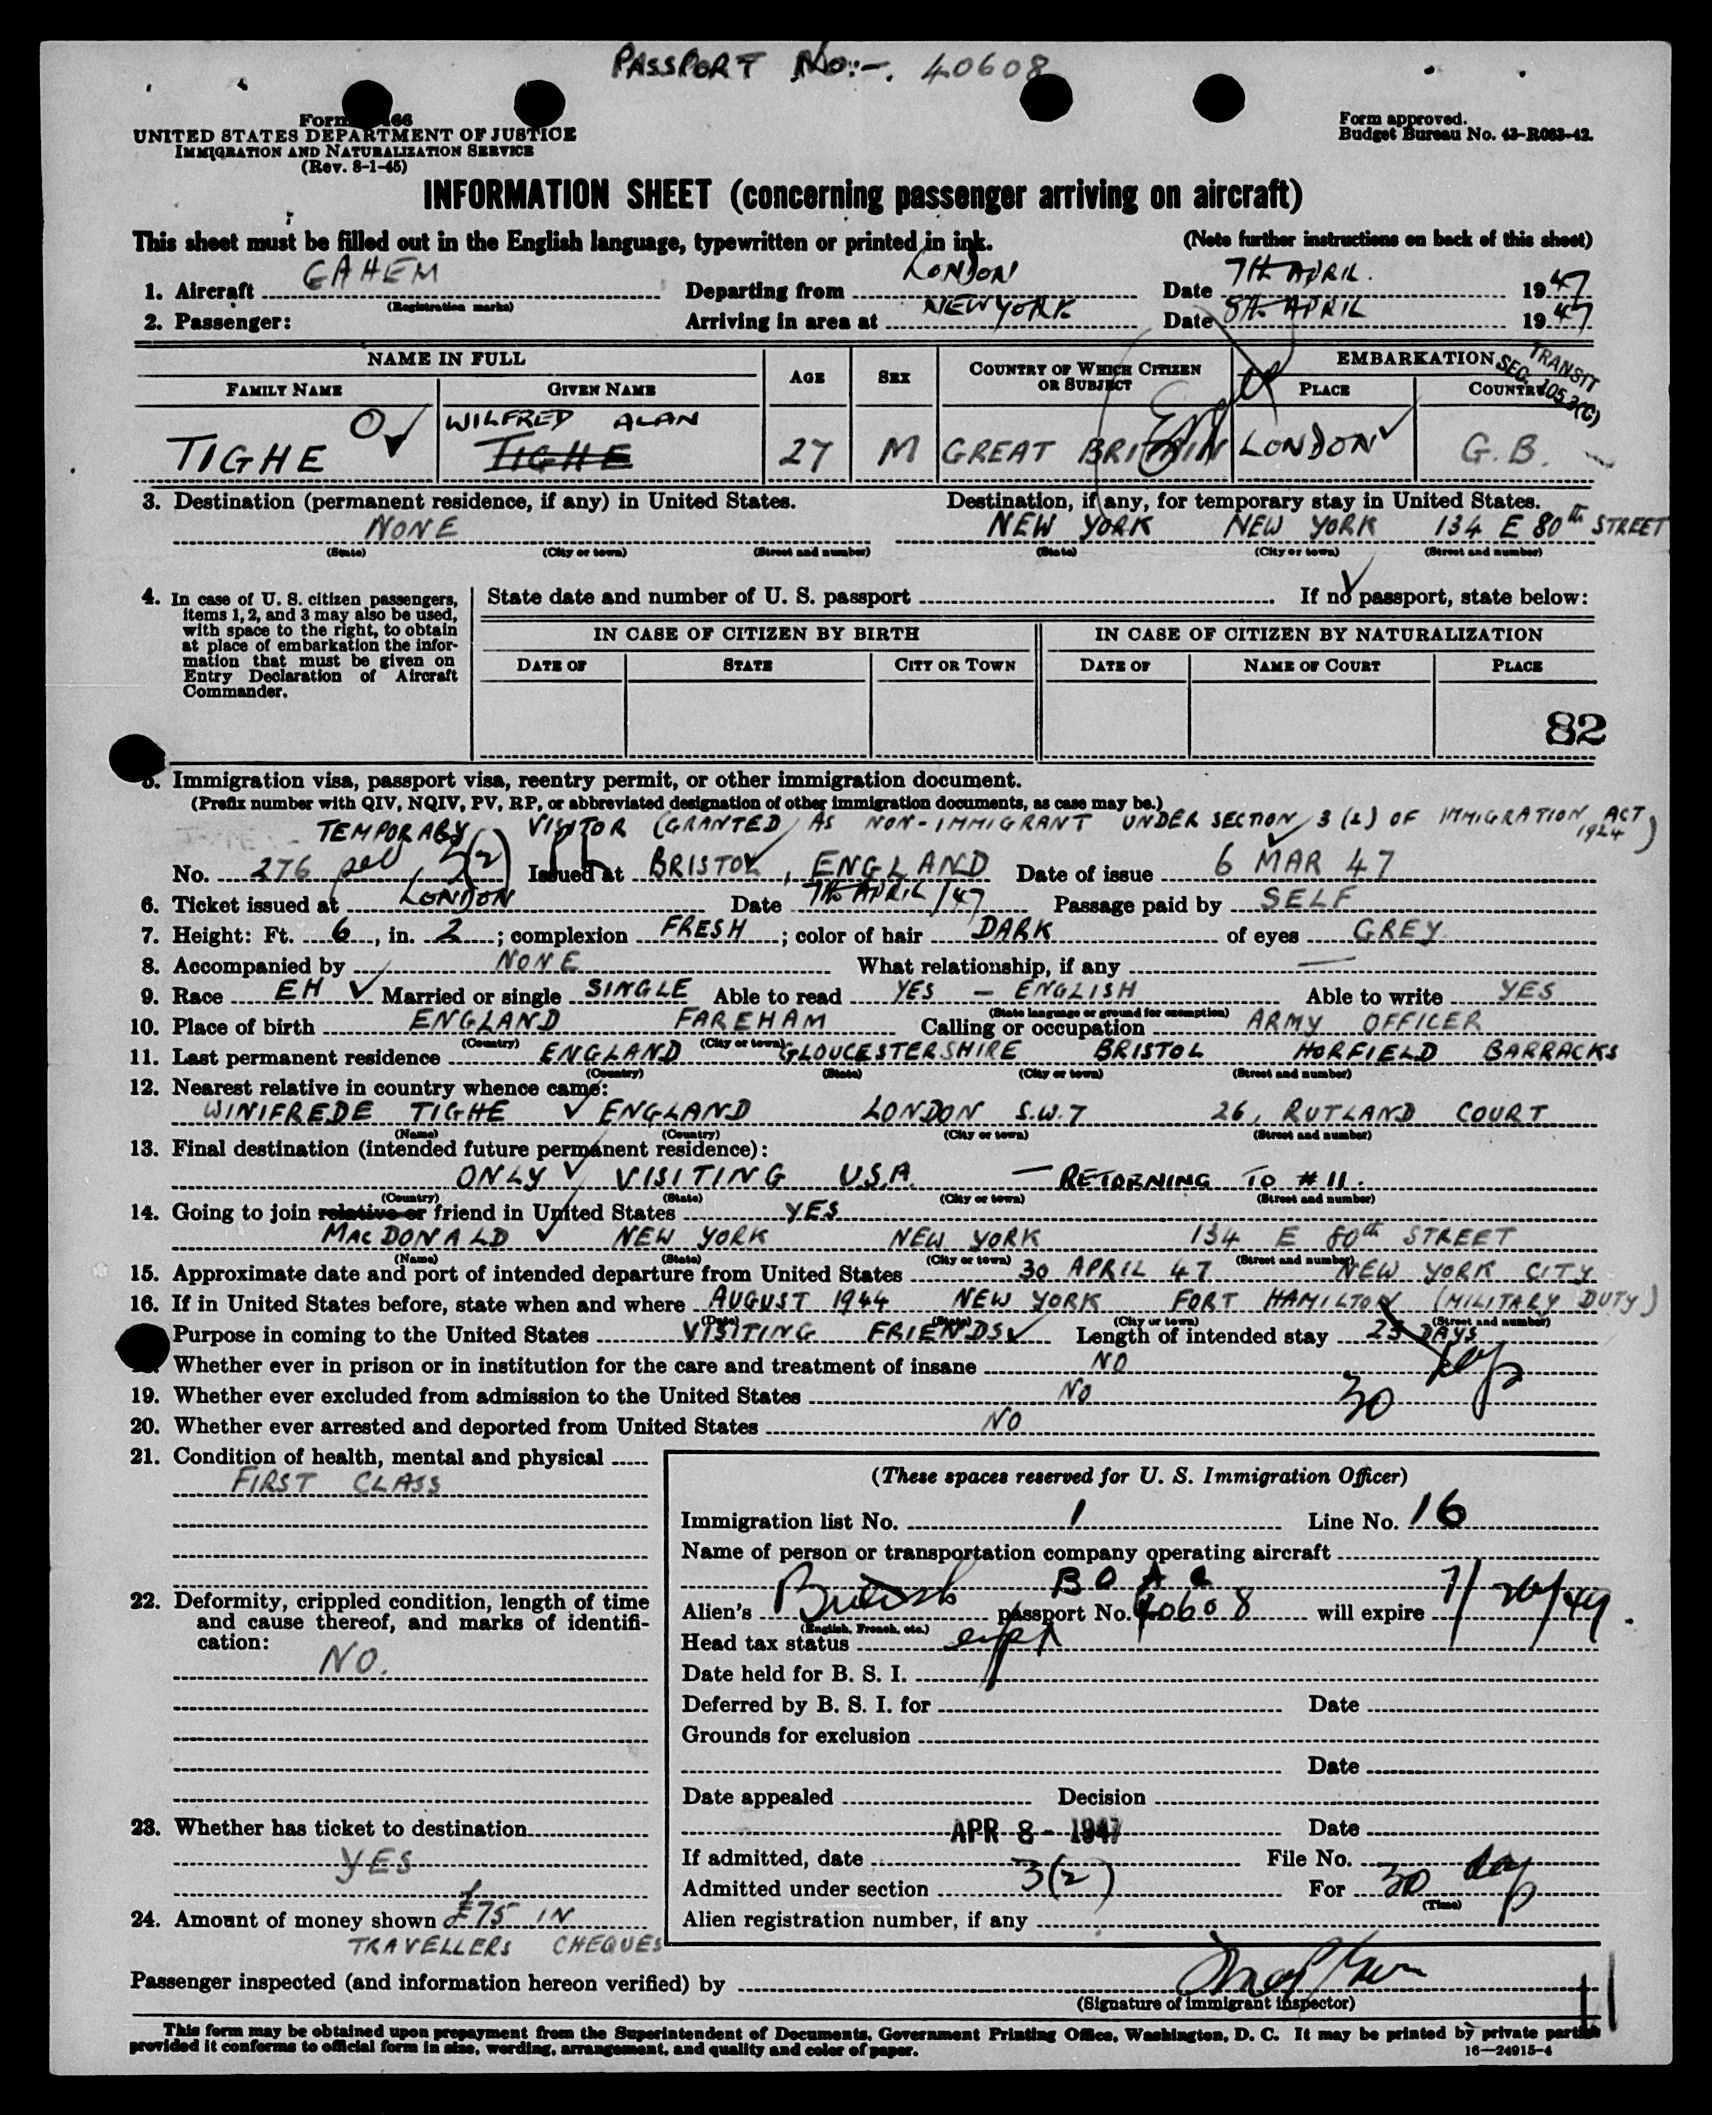 PASSPORT No:-. 40608
Form 66
UNITED STATES DEPARTMENT OF JUSTICE
IMMIGRATION AND NATURALIZATION SERVICE
(Rev. 8-1-45)
Form approved.
Budget Bureau No. 43-R063-42.
INFORMATION SHEET (concerning passenger arriving on aircraft)
This sheet must be filled out in the English language, typewritten or printed in ink. (Note further instructions on back of this sheet)
1. Aircraft GAHEM Departing from LONDON Date 7TH APRIL. 1947
(Registration marks)
2. Passenger: Arriving in area at NEW YORK Date 8TH APRIL 1947
NAME IN FULL AGE SEX COUNTRY OF WHICH CITIZEN OR SUBJECT EMBARKATION
TRANSIT
SEC. 105.3(C)
FAMILY NAME GIVEN NAME PLACE COUNTRY
WILFRED ALAN
TIGHE TIGHE 27 M GREAT BRITAIN LONDON G.B.
3. Destination (permanent residence, if any) in United States. Destination, if any, for temporary stay in United States.
NONE NEW YORK NEW YORK 134 E 80th STREET
(State) (City or town) (Street and number) (State) (City or town) (Street and number)
4. In case of U. S. citizen passengers, items 1, 2, and 3 may also be used, with space to the right, to obtain at place of embarkation the information that must be given on Entry Declaration of Aircraft Commander.
State date and number of U. S. passport If no passport, state below:
IN CASE OF CITIZEN BY BIRTH IN CASE OF CITIZEN BY NATURALIZATION
DATE OF STATE CITY OR TOWN DATE OF NAME OF COURT PLACE
82
5. Immigration visa, passport visa, reentry permit, or other immigration document.
(Prefix number with QIV, NQIV, PV, RP, or abbreviated designation of other immigration documents, as case may be.)
TEMPORARY VISITOR (GRANTED AS NON-IMMIGRANT UNDER SECTION 3(2) OF IMMIGRATION ACT 1924)
No. 276 3(2) Issued at BRISTOL, ENGLAND Date of issue 6 MAR 47
6. Ticket issued at LONDON Date 7TH APRIL/47 Passage paid by SELF
7. Height: Ft. 6, in. 2; complexion FRESH; color of hair DARK of eyes GREY.
8. Accompanied by NONE What relationship, if any —
9. Race EH Married or single SINGLE Able to read YES - ENGLISH Able to write YES
(State language or ground for exemption)
10. Place of birth ENGLAND FAREHAM Calling or occupation ARMY OFFICER
(Country) (City or town)
11. Last permanent residence ENGLAND GLOUCESTERSHIRE BRISTOL HORFIELD BARRACKS
(Country) (State) (City or town) (Street and number)
12. Nearest relative in country whence came:
WINIFREDE TIGHE ENGLAND LONDON S.W.7 26, RUTLAND COURT
(Name) (Country) (City or town) (Street and number)
13. Final destination (intended future permanent residence):
ONLY VISITING U.S.A. — RETURNING TO # 11.
(Country) (State) (City or town) (Street and number)
14. Going to join relative or friend in United States YES
MACDONALD NEW YORK NEW YORK 134 E 80th STREET
(Name) (State) (City or town) (Street and number)
15. Approximate date and port of intended departure from United States 30 APRIL 47 NEW YORK CITY
16. If in United States before, state when and where AUGUST 1944 NEW YORK FORT HAMILTON (MILITARY DUTY)
(Date) (State) (City or town) (Street and number)
Purpose in coming to the United States VISITING FRIENDS Length of intended stay 23 DAYS
Whether ever in prison or in institution for the care and treatment of insane NO
30 days
19. Whether ever excluded from admission to the United States NO
20. Whether ever arrested and deported from United States NO
21. Condition of health, mental and physical
FIRST CLASS
22. Deformity, crippled condition, length of time and cause thereof, and marks of identification:
NO.
23. Whether has ticket to destination
YES
24. Amount of money shown £75 IN
TRAVELLERS CHEQUES
(These spaces reserved for U. S. Immigration Officer)
Immigration list No. 1 Line No. 16
Name of person or transportation company operating aircraft
B O A C
Alien's British passport No. 40608 will expire 1/26/49.
(English, French, etc.)
Head tax status
Date held for B. S. I.
Deferred by B. S. I. for Date
Grounds for exclusion
Date
Date appealed Decision
APR 8 - 1947 Date
If admitted, date File No.
Admitted under section 3(2) For 30 days
(Time)
Alien registration number, if any
Passenger inspected (and information hereon verified) by
(Signature of immigrant inspector)
This form may be obtained upon prepayment from the Superintendent of Documents, Government Printing Office, Washington, D. C. It may be printed by private parties
provided it conforms to official form in size, wording, arrangement, and quality and color of paper. 16—24915-4